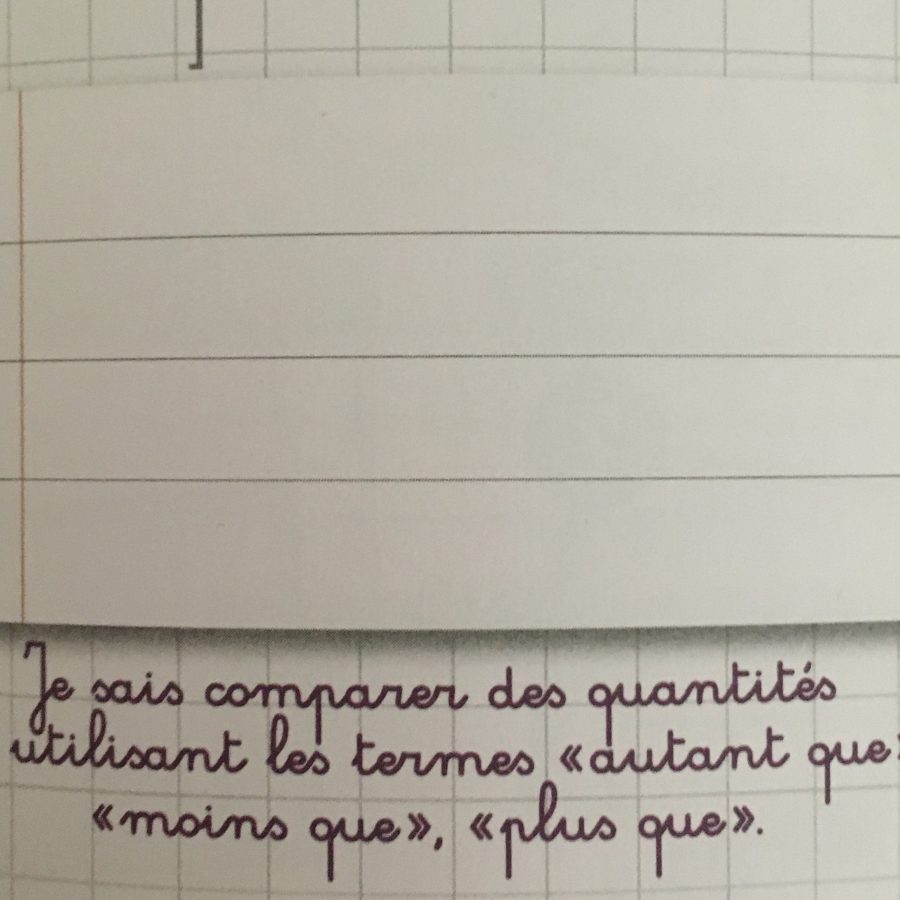 Je sais comparer des quantités
utilisant les termes «autant que»
«moins que», «plus que».